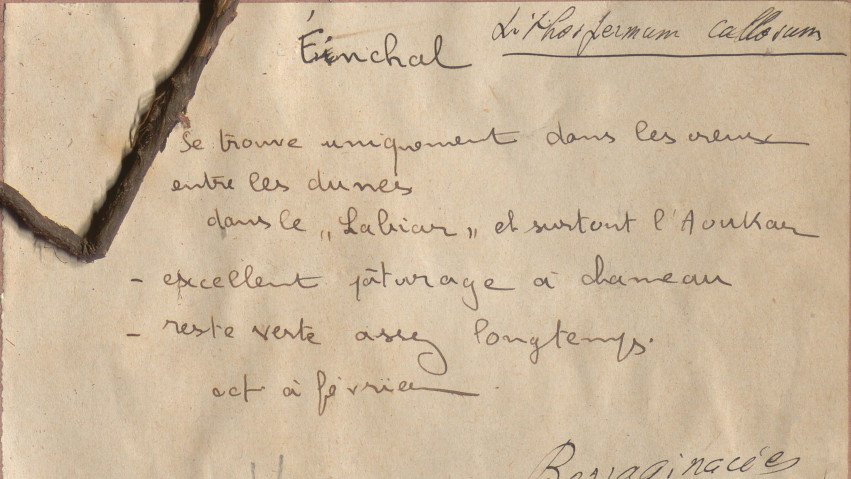 Éinchal
Lithospermum callosum
Se trouve uniquement dans les creux
entre les dunes
dans le "Labiar" et surtout l'Aoukar
- excellent pâturage à chameau
- reste verte assez longtemps.
oct à février
Borraginacées